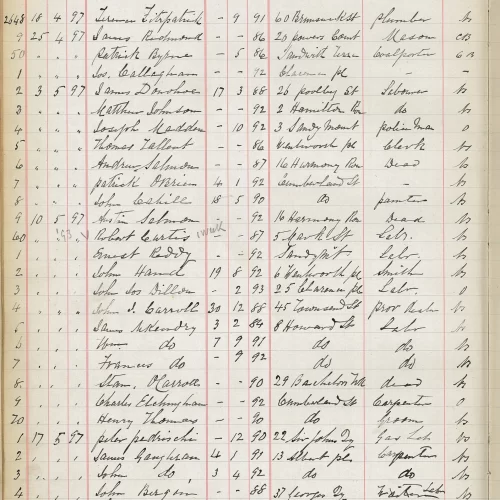 2648 18 4 97 Terence Fitzpatrick - 9 91 60 Brunswick St plumber
9 25 4 97 James Richmond - - 86 20 powers Court Mason
50 " " " Patrick Byrne - 5 86 Sandwith Coalporter
1 " " " Jos. Callaghan - - 92 Clarence pl -
2 3 5 97 James Donohoe 17 3 88 26 poolbeg St
3 " " " Matthew Johnson - - 92 2 Hamilton Row do
4 " " " Joseph Madden - 10 92 3 Sandymount police man 0
5 " " " Thomas Tallent - - 86 Wentworth pl Clerk
6 " " " Andrew Salmon - - 87 16 Harmony Row Dead
7 " " " patrick O'Brien 4 1 92 Cumberland St -
8 " " " John Cahill 18 5 90 do painter
9 10 5 97 Austin Salmon - - 92 16 Harmony Row Dead
60 " " Robert Curtis - - 87 5 Mark St Labr.
1 " " " Ernest Reddy - - 92 Sandymt Labr
2 " " " John Hand 19 8 92 6 Wentworth pl Smith
3 " " " John Jos Dillon - 2 93 25 Clarence pl Labr. 0
4 " " " John J. Carroll 30 12 88 45 Townsend St prov dealer
5 " " " James McKendry 3 2 84 8 Howard St Labr
6 " " " Wm do 7 9 91 do do
7 " " " Francis do - 9 92 do do
8 " " " Stan. O'Carroll - - 90 29 Bachelors Walk dead
9 " " " Charles - - 92 Cumberland St Carpenter 0
70 " " " Henry Thomas - - 90 do Groom
1 17 5 97 peter - 12 90 22 Sir Johns Qy Gas Lab
2 " " " James Gaughran 4 1 91 13 Albert pl Carpenter
3 " " " John do 3 4 92 do do
4 " " " John Bergin - - 88 37 Georges Qy